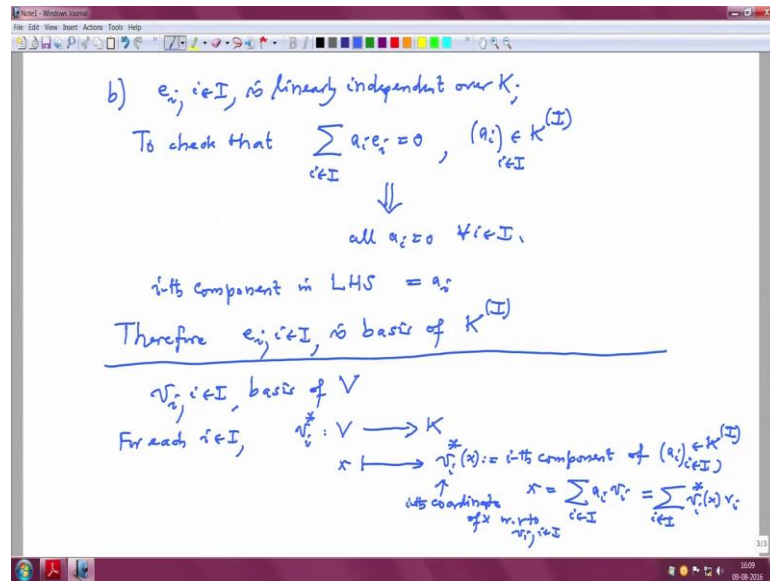 Note1 - Windows Journal
File Edit View Insert Actions Tools Help
b) e_i, i∈I, is linearly independent over K;
To check that ∑_{i∈I} a_i e_i = 0 , (a_i)_{i∈I} ∈ K^{(I)}
⇓
all a_i = 0 ∀ i∈I.
i-th component in LHS = a_i
Therefore e_i, i∈I, is basis of K^{(I)}
v_i, i∈I, basis of V
For each i∈I, v_i^* : V ⟶ K
x ⟼ v_i^*(x) := i-th component of (a_i)_{i∈I} ∈ K^{(I)},
↑
ith coordinate of x w.r.to v_i, i∈I
x = ∑_{i∈I} a_i v_i = ∑_{i∈I} v_i^*(x) v_i
3/3
16:09
09-08-2016